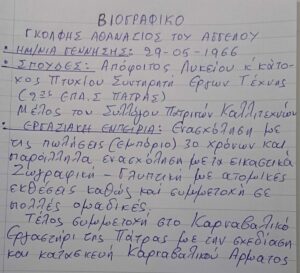 ΒΙΟΓΡΑΦΙΚΟ
ΓΚΟΛΦΗΣ ΑΘΑΝΑΣΙΟΣ ΤΟΥ ΑΓΓΕΛΟΥ
• ΗΜ/ΝΙΑ ΓΕΝΝΗΣΗΣ: 29-05-1966
• ΣΠΟΥΔΕΣ: Απόφοιτος Λυκείου κ' κάτο-
χος Πτυχίου Συντηρητή Εργων Τέχνης
(2ης ΕΠΑ.Σ ΠΑΤΡΑΣ)
Μέλος του Συλλόγου Πατρινών Καλλιτεχνών
• ΕΡΓΑΣΙΑΚΗ ΕΜΠΕΙΡΙΑ: Ενασχόληση με
τις πωλήσεις (εμπόριο) 30 χρόνων και
παράλληλα ενασχόληση με τα εικαστικά
Ζωγραφική - Γλυπτική με ατομικές
εκθέσεις καθώς και συμμετοχή σε
πολλές ομαδικές.
Τέλος συμμετοχή στο Καρναβαλικό
Εργαστήρι της Πάτρας με την σχεδίαση
και κατασκευή Καρναβαλικού Αρματος